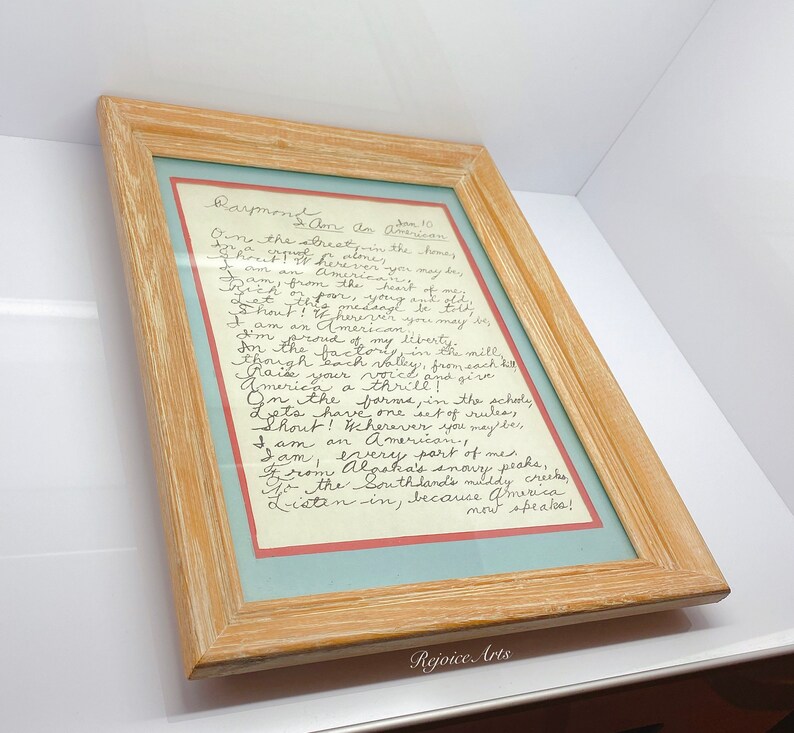 Raymond
Jan 10
I Am An American
On the street, in the home,
In a crowd or alone,
Shout! Wherever you may be,
I am an American,
I am, from the heart of me,
Rich or poor, youg and old,
Let this message be told,
Shout! Wherever you may be,
I am an American.
I'm proud of my liberty.
In the factory, in the mill,
though each valley, from each hill
Raise your voice, and give
America a thrill!
On the farms, in the schools,
Lets have one set of rules,
Shout! Wherever you may be,
I am an American,
I am, every part of me.
From Alaska's snowy peaks,
To the Southland's muddy creeks,
Listen in, because America
now speaks!
RejoiceArts